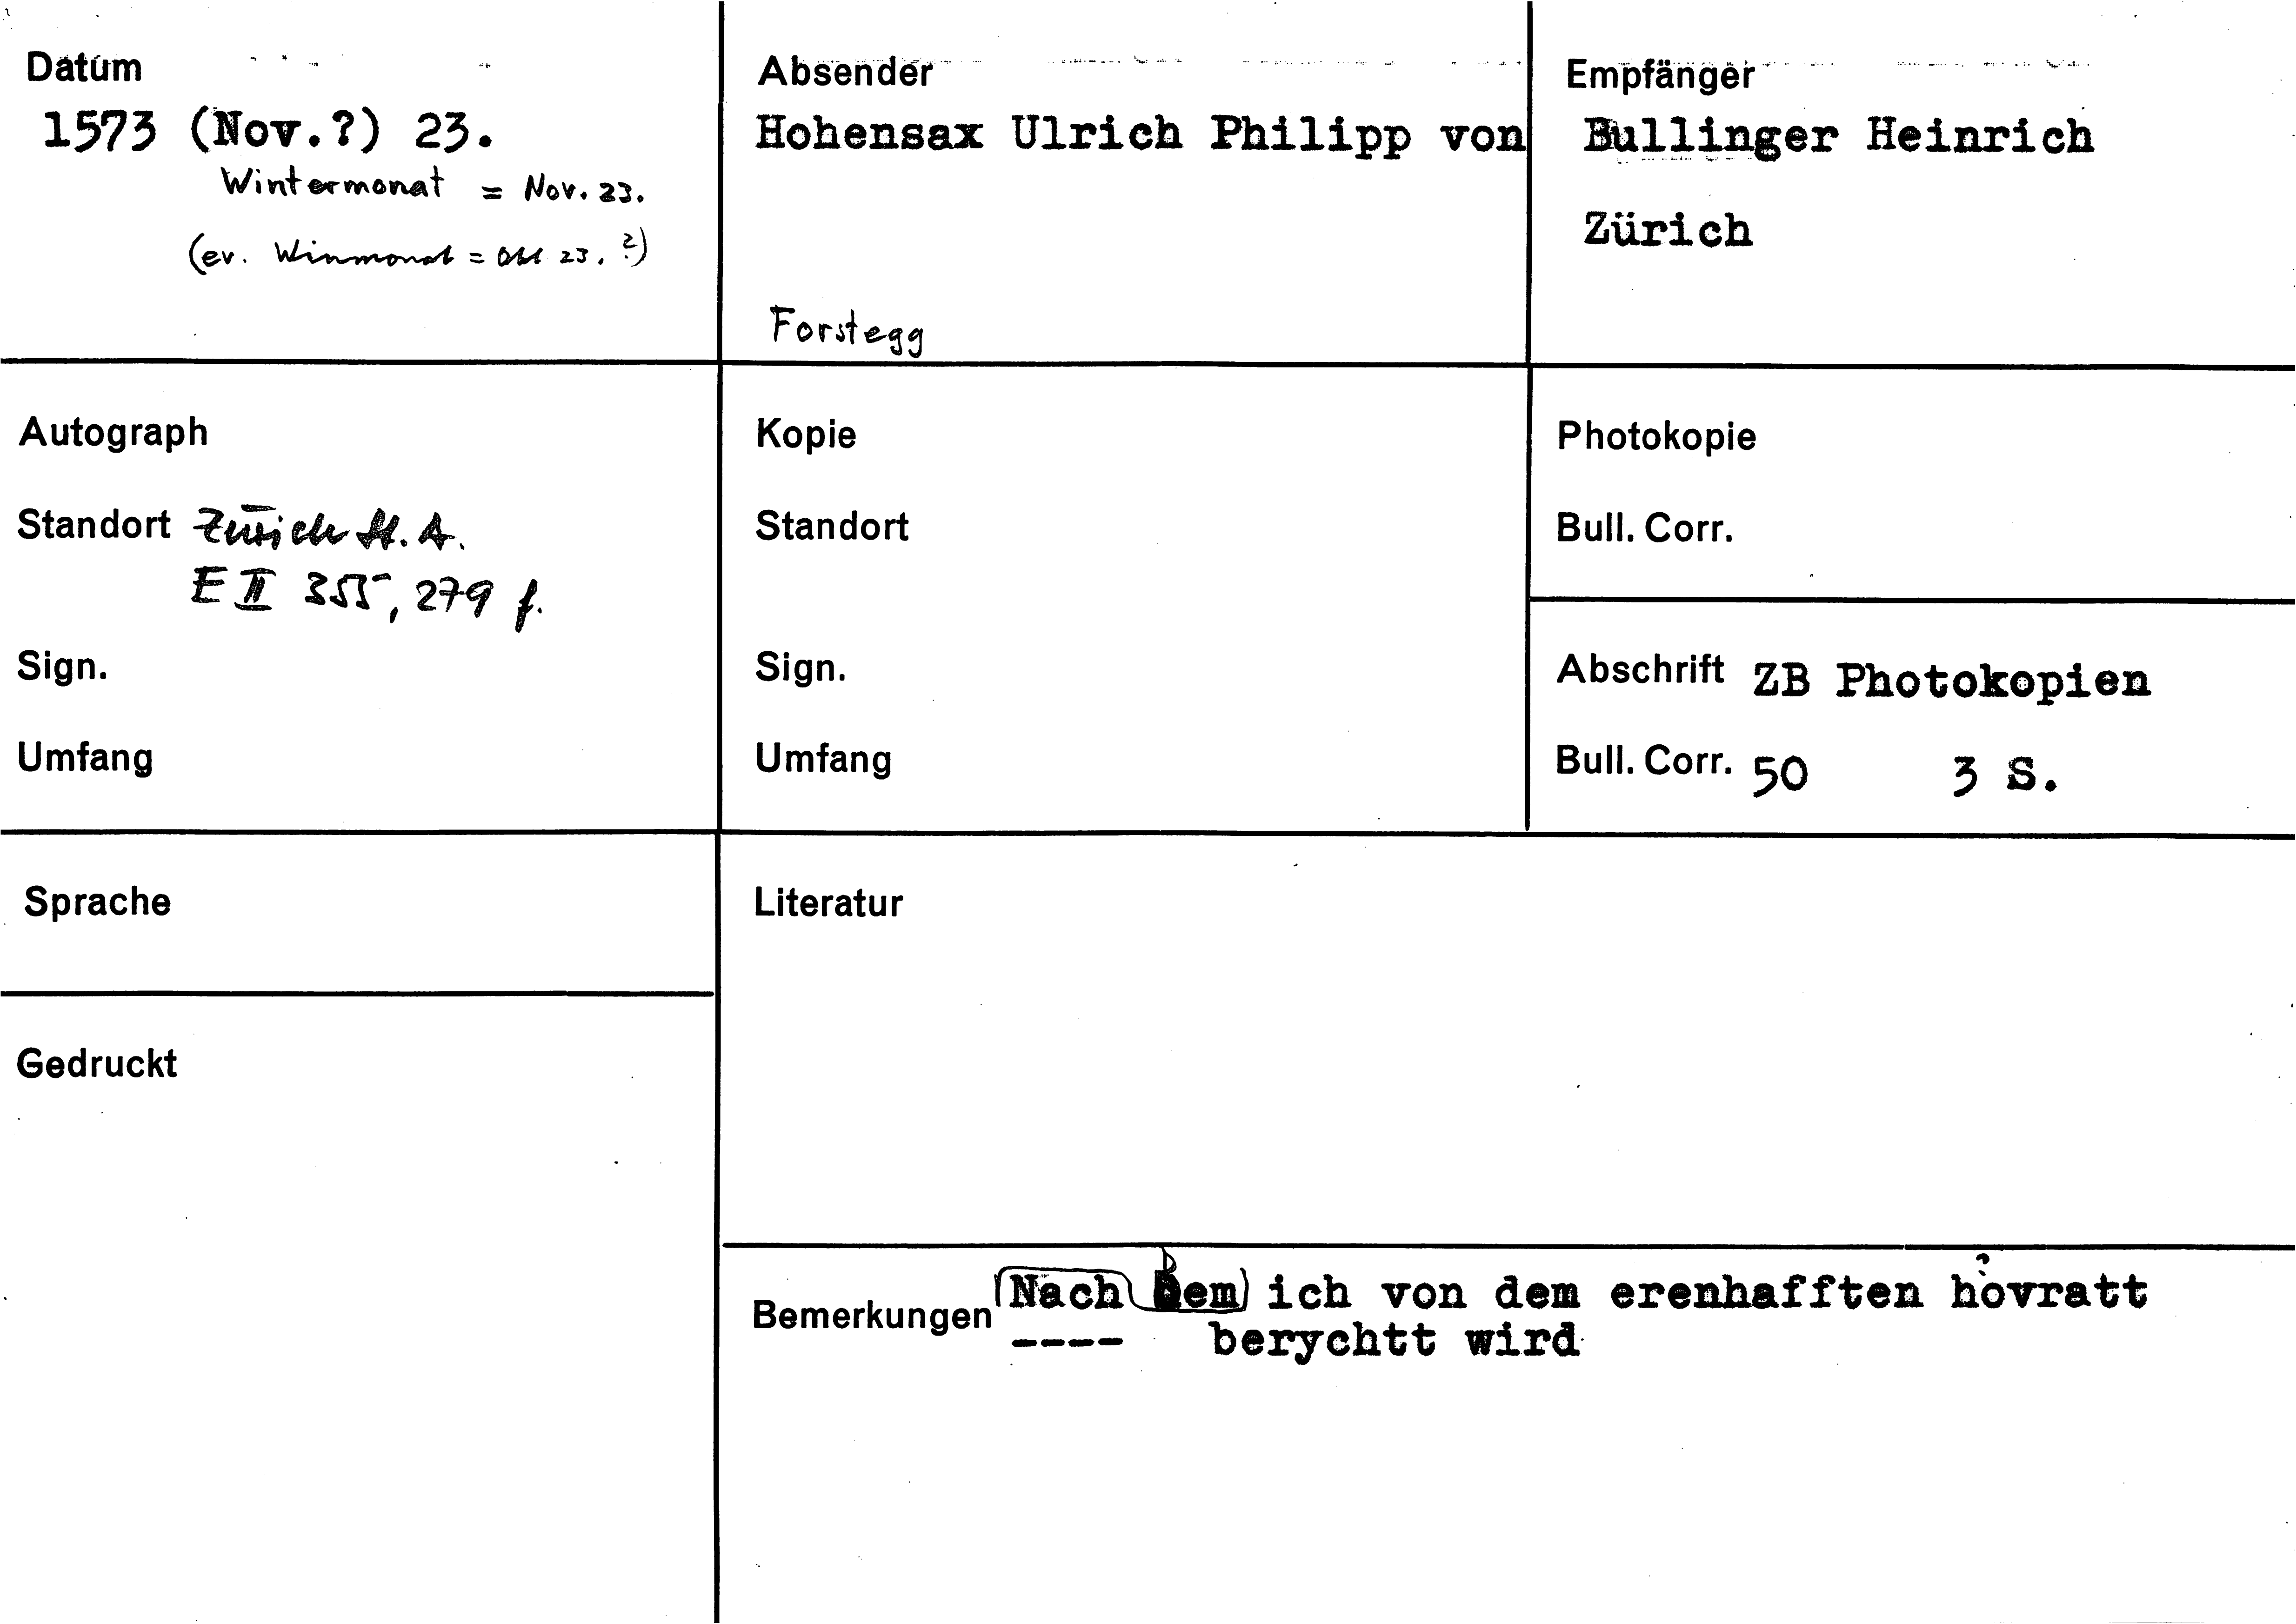 Datum
1573 (Nov.?) 23.
Wintermonat = Nov. 23.
(ev. Winmonat = Okt 23. ?)
Absender
Hohensax Ulrich Philipp von
Forstegg
Empfänger
Bullinger Heinrich
Zürich
Autograph
Standort Zürich St. A.
E II 355, 279 f.
Sign.
Umfang
Kopie
Standort
Sign.
Umfang
Photokopie
Bull. Corr.
Abschrift ZB Photokopien
Bull. Corr. 50 3 S.
Sprache
Gedruckt
Literatur
Bemerkungen Nach Dem ich von dem erenhafften hovratt
---- berychtt wird